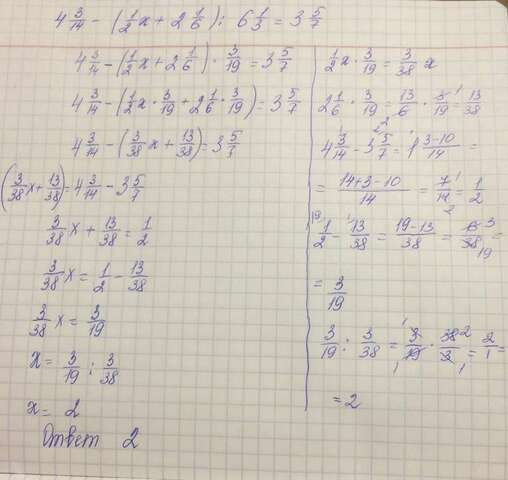 4 3/14 - (1/2 x + 2 1/6) : 6 1/3 = 3 5/7
4 3/14 - (1/2 x + 2 1/6) · 3/19 = 3 5/7
4 3/14 - (1/2 x · 3/19 + 2 1/6 · 3/19) = 3 5/7
4 3/14 - (3/38 x + 13/38) = 3 5/7
(3/38 x + 13/38) = 4 3/14 - 3 5/7
3/38 x + 13/38 = 1/2
3/38 x = 1/2 - 13/38
3/38 x = 3/19
x = 3/19 : 3/38
x = 2
Ответ 2
1/2 x · 3/19 = 3/38 x
2 1/6 · 3/19 = 13/6 · 3/19 = 13/38
4 3/14 - 3 5/7 = 1 3-10/14 =
= 14+3-10/14 = 7/14 = 1/2
1/2 - 13/38 = 19-13/38 = 6/38 =
= 3/19
3/19 : 3/38 = 3/19 · 38/3 = 2/1 =
= 2